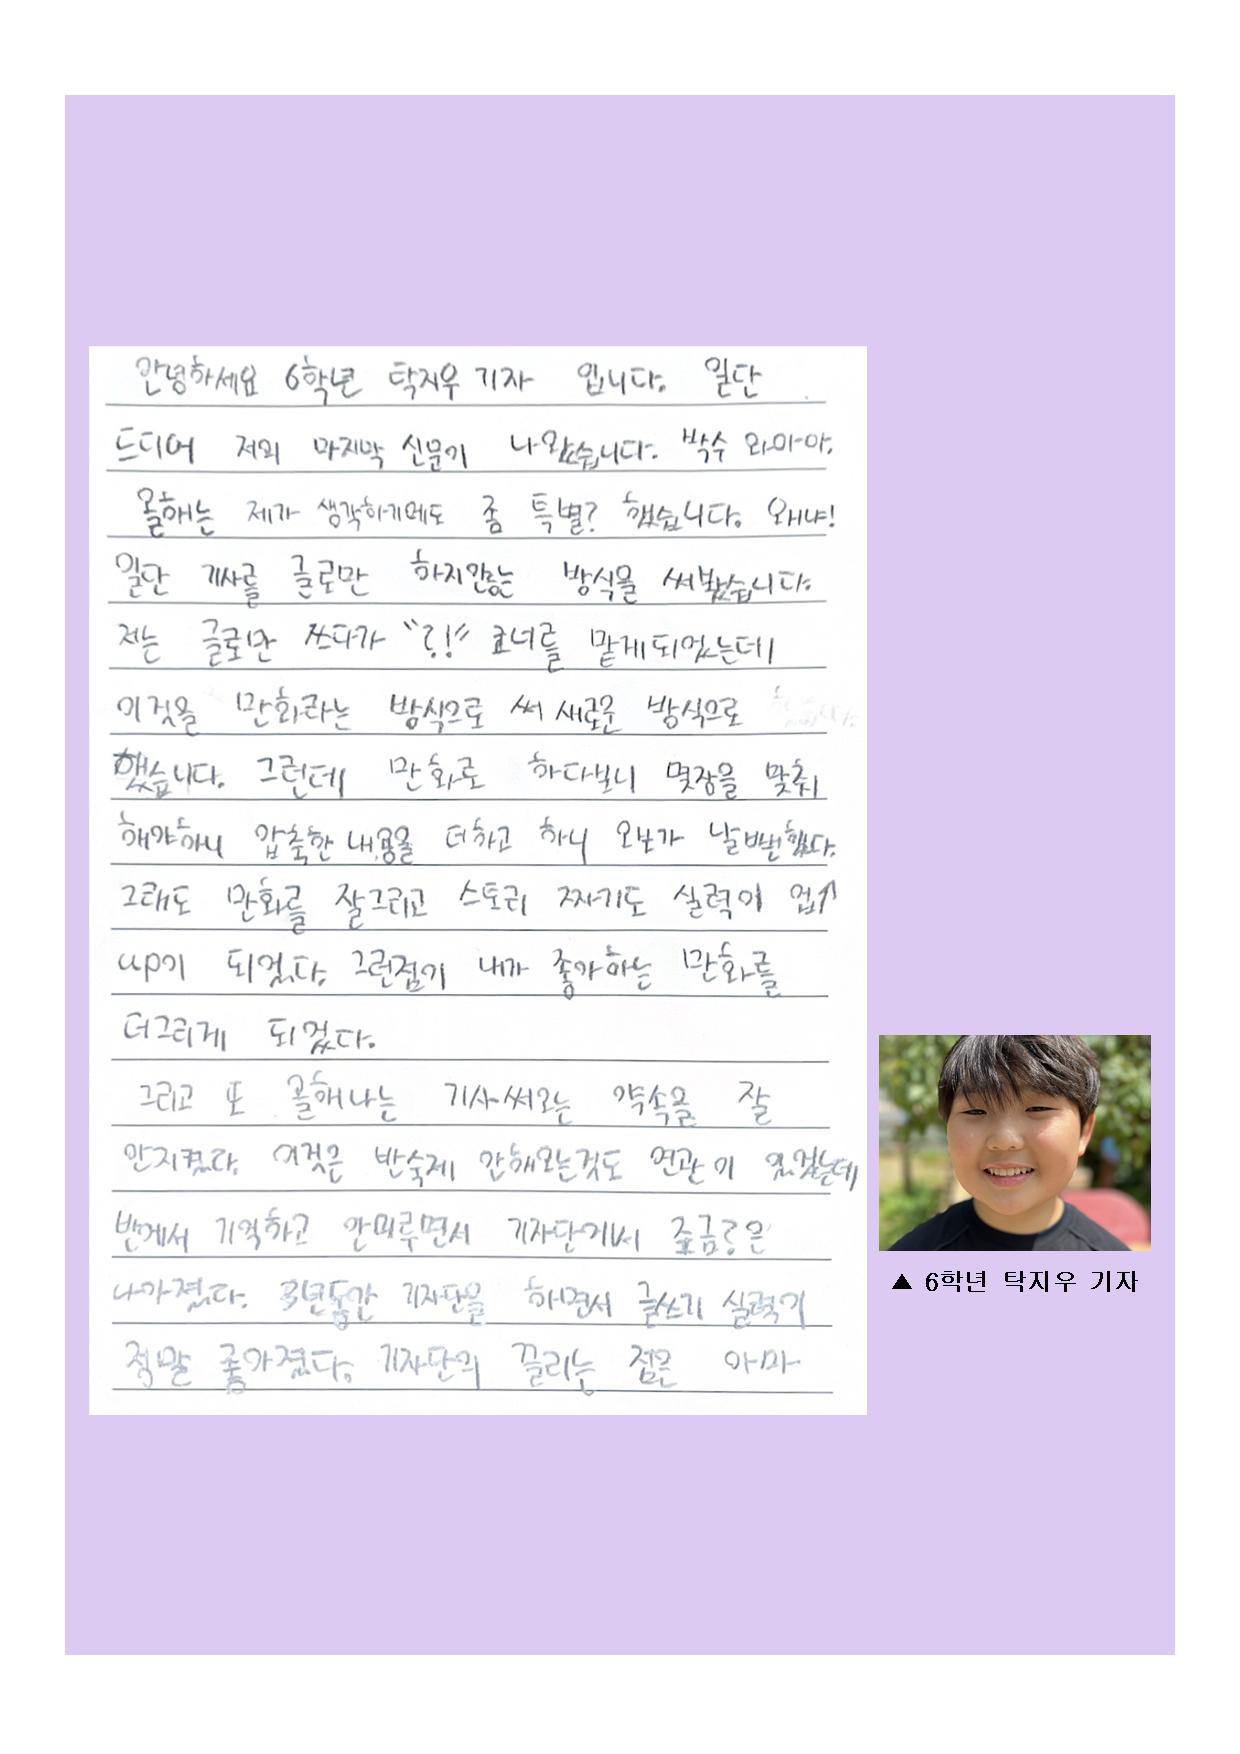 안녕하세요 6학년 탁지우 기자 입니다. 일단
드디어 저의 마지막 신문이 나왔습니다. 박수 와아아.
올해는 제가 생각하기에도 좀 특별? 했습니다. 왜냐!
일단 기사를 글로만 하지않는 방식을 써봤습니다.
저는 글로만 쓰다가 "?!" 코너를 맡게되었는데
이것을 만화라는 방식으로 써 새로운 방식으로
했습니다. 그런데 만화로 하다보니 몇장을 맞춰
해야하니 압축한 내용을 더하고 하니 오보가 날뻔했다.
그래도 만화를 잘그리고 스토리 짜기도 실력이 업↑
up이 되었다. 그런점이 내가 좋아하는 만화를
더그리게 되었다.
그리고 또 올해 나는 기사써오는 약속을 잘
안지켰다. 이것은 반숙제 안해오는것도 연관이 있었는데
반에서 기억하고 안미루면서 기자단에서 조금은
나아졌다. 3년동안 기자단을 하면서 글쓰기 실력이
정말 좋아졌다. 기자단의 끌리는 점은 아마
▲ 6학년 탁지우 기자